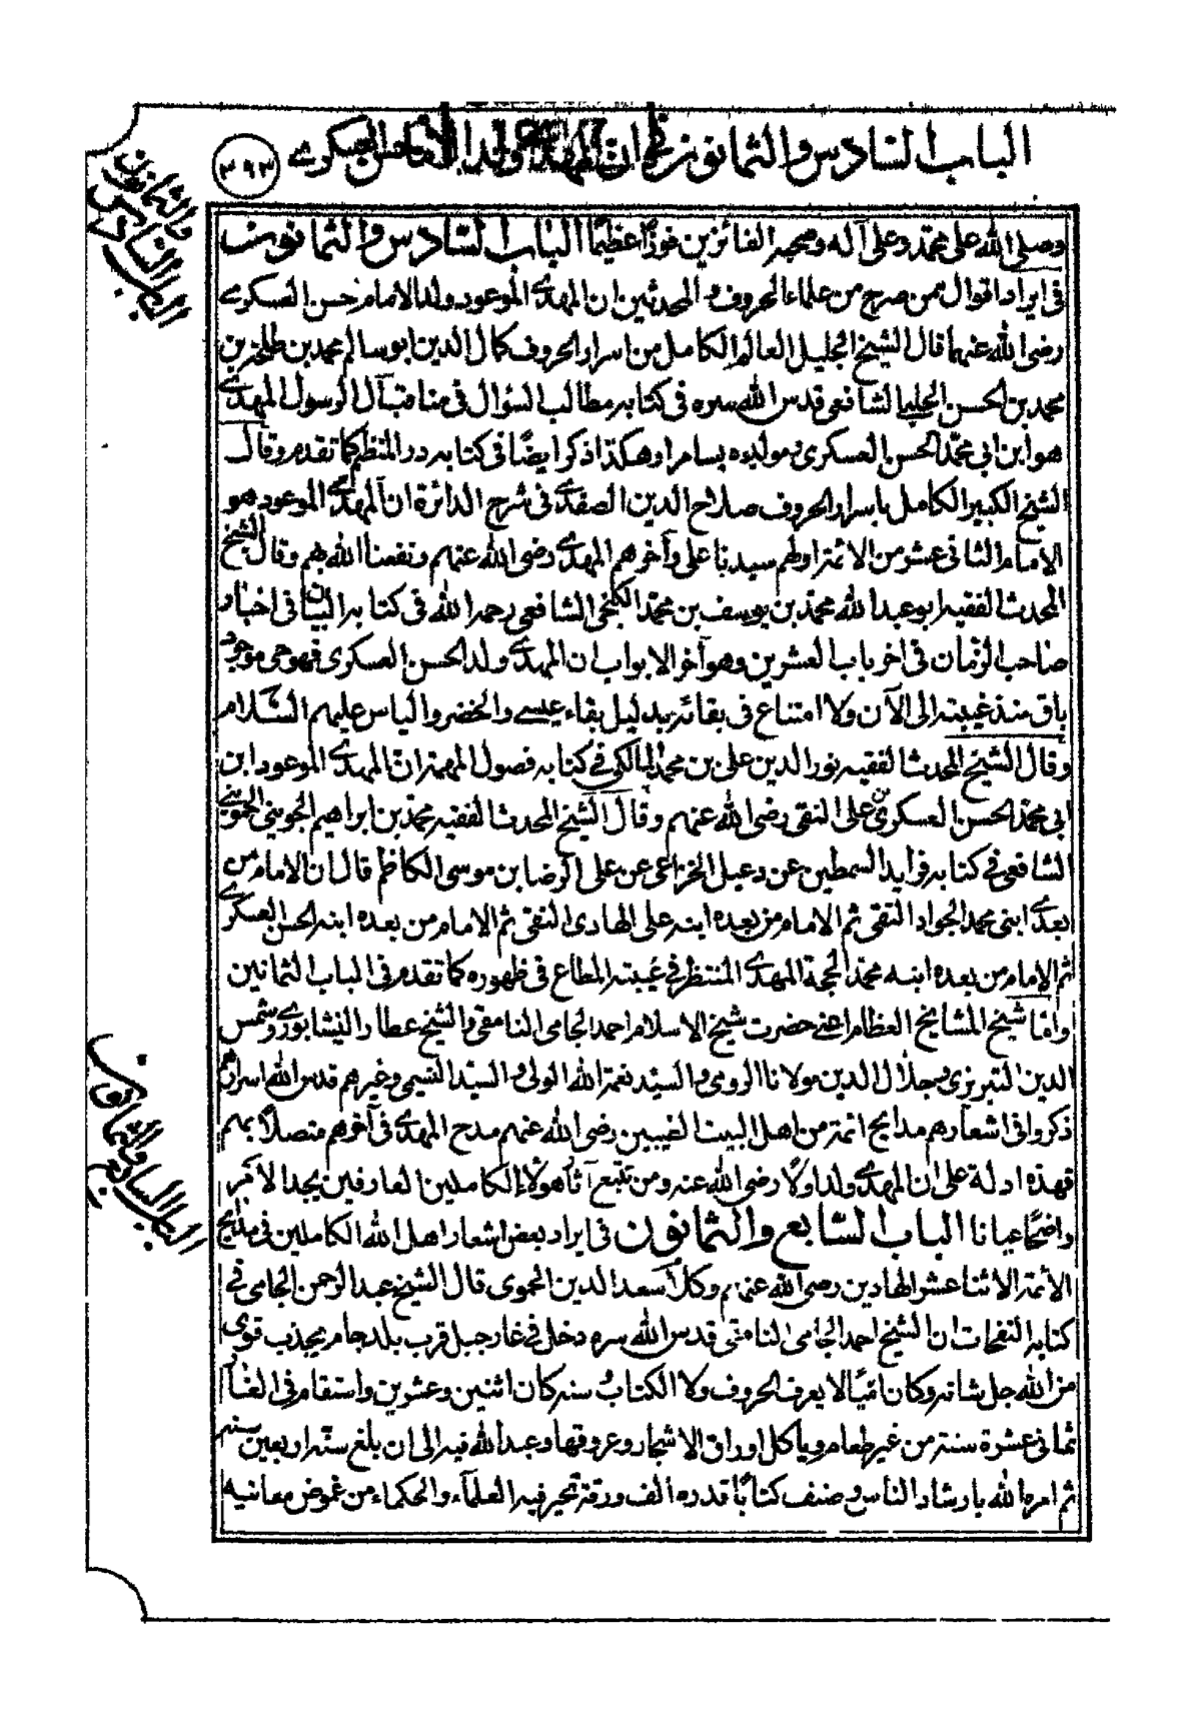 الباب السادس والثمانون في ان المهدي ولد الامام حسن العسكري
٣٩٣
والثمانون
السادس
الباب
وصلى الله على محمد وعلى آله وصحبه الفائزين فوزا عظيما الباب السادس والثمانون
في ايراد اقوال ممن صرح من علماء الحروف و المحدثين ان المهدي الموعود ولد الامام حسن العسكري
رضي الله عنهما قال الشيخ الجليل العالم الكامل من اسرار الحروف كمال الدين ابو سالم محمد بن طلحة بن
محمد بن الحسن الحلبي الشافعي قدس الله سره في كتابه مطالب السؤال في مناقب آل الرسول المهدي
هو ابن ابي محمد الحسن العسكري و مولده بسامرا وهكذا ذكر ايضا في كتابه در المنظم كما تقدم و قال
الشيخ الكبير الكامل باسرار الحروف صلاح الدين الصفدي في شرح الدائرة ان المهدي الموعود هو
الامام الثاني عشر من الائمة اولهم سيدنا علي وآخرهم المهدي رضي الله عنهم ونفعنا الله بهم وقال الشيخ
المحدث الفقيه ابو عبد الله محمد بن يوسف بن محمد الكنجي الشافعي رحمه الله في كتابه البيان في اخبار
صاحب الزمان في اخر باب العشرين وهو آخر الابواب ان المهدي ولد الحسن العسكري فهو حي موجود
باق منذ غيبته الى الآن ولا امتناع في بقائه بدليل بقاء عيسى والخضر والياس عليهم السلام
وقال الشيخ المحدث الفقيه نور الدين علي بن محمد المالكي في كتابه فصول المهمة ان المهدي الموعود ابن
ابي محمد الحسن العسكري بن علي النقي رضي الله عنهم وقال الشيخ المحدث الفقيه محمد بن ابراهيم الجويني الحمويني
الشافعي في كتابه فرايد السمطين عن دعبل الخزاعي عن علي الرضا بن موسى الكاظم قال ان الامام من
بعدي ابني محمد الجواد التقي ثم الامام من بعده ابنه علي الهادي النقي ثم الامام من بعده ابنه الحسن العسكري
ثم الامام من بعده ابنه محمد الحجة المهدي المنتظر في غيبته المطاع في ظهوره كما تقدم في الباب الثمانين
واما شيخ المشايخ العظام اعني حضرت شيخ الاسلام احمد الجامي النامقي والشيخ عطار النيشابوري وشمس
الدين التبريزي وجلال الدين مولانا الرومي والسيد نعمة الله الولي و السيد النسيمي وغيرهم قدس الله اسرارهم
ذكروا في اشعارهم مدايح ائمة من اهل البيت الطيبين رضي الله عنهم مدح المهدي في آخرهم متصلا بهم
فهذه ادلة على ان المهدي ولد اولا رضي الله عنه ومن تتبع آثار هولاء الكاملين العارفين يجد الامر
واضحا عيانا الباب السابع والثمانون في ايراد بعض اشعار اهل الله الكاملين في مدايح
الأئمة الاثنا عشر الهادين رضي الله عنهم وكلام سعد الدين الحموي قال الشيخ عبد الرحمن الجامي في
كتابه النفحات ان الشيخ احمد الجامي النامقي قدس الله سره دخل في غار جبل قرب بلد جام بجذب قوي
من الله جل شانه وكان اميا لا يعرف الحروف ولا الكتاب سنه كان اثنين وعشرين واستقام في الغار
ثماني عشرة سنة من غير طعام وياكل اوراق الاشجار وعروقها وعبد الله فيه الى ان بلغ سنه اربعين سنة
ثم امره الله بارشاد الناس وصنف كتابا قدره الف ورقة تحير فيه العلمآء والحكماء من غموض معانيه
والثمانون
الباب السابع